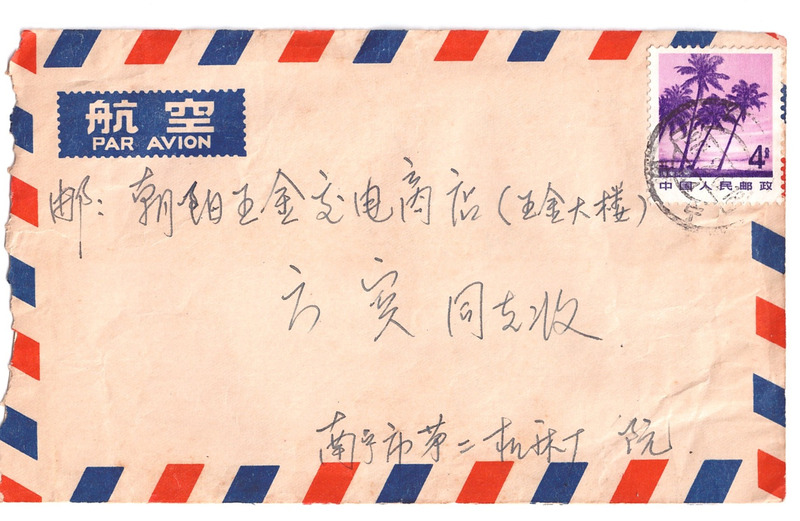 航空
PAR AVION
4分
中国人民邮政
邮：朝阳五金交电商店（五金大楼）
方宾 同志收
南宁市第二机床厂 阮